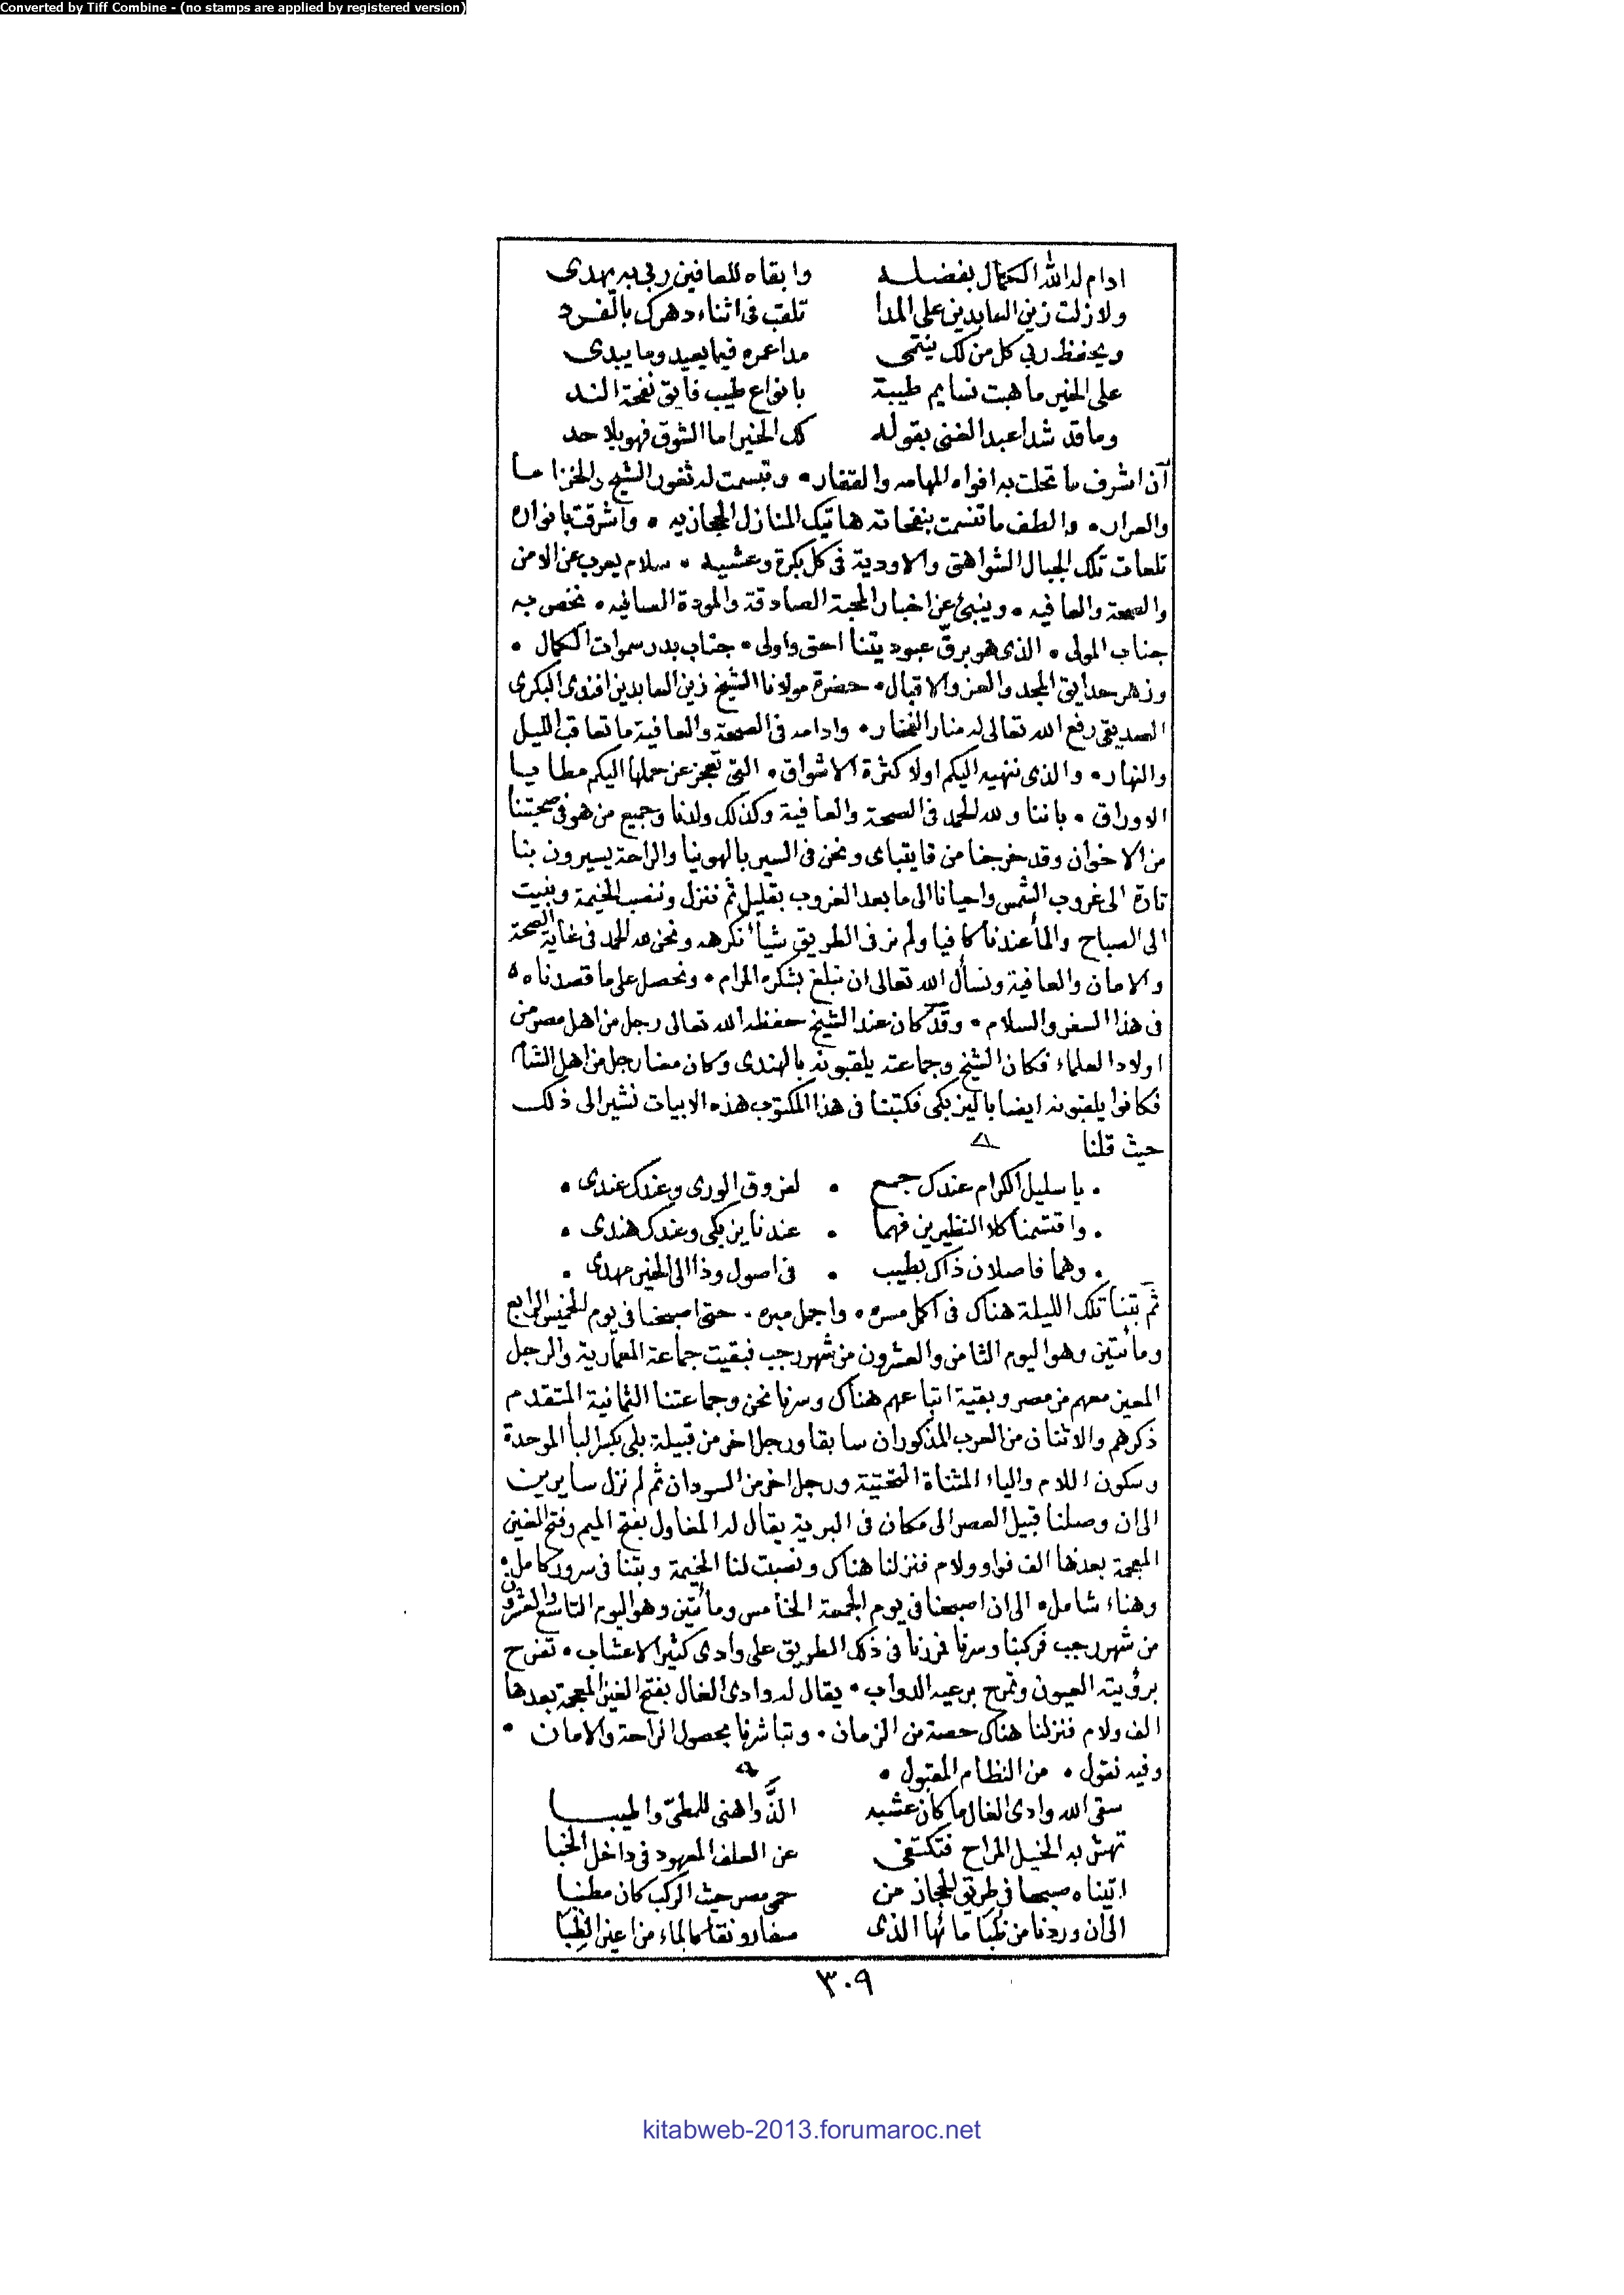 Converted by Tiff Combine - (no stamps are applied by registered version)
ادام له الله الكمال بفضله وابقاه للعافين ربي به يهدى
ولا زلت زين العابدين على المدا تلقب في اثناء دهرك بالفرد
ويحفظ ربي كل من لك ينتمى مدا عمره فيما يعيد وما يبدى
على الخير ما هبت نسايم طيبة بانواع طيب فايق نفحة الند
وما قد شدا عبد الغنى بقوله لك الخير اما الشوق فهو بلا حد
آن اشرف ما تحلت به افواه المهامه والقفار • وتبسمت له ثغور الشيح والخزاما
والعرار • والطف ما تنسمت بنفحاته هاتيك المنازل الحجازيه • واشرقت بانواره
تلعات تلك الجبال الشواهق والاودية في كل بكرة وعشيه • سلام يعرب عن الامن
والصحة والعافيه • وينبئ عن اخبار المحبة الصادقة والمودة الصافيه • نخص به
جناب المولى • الذى هو برق عبوديتنا احق واولى • جناب بدر سموات الكمال •
وزهر حدايق المجد والعز والاقبال • حضرة مولانا الشيخ زين العابدين افندى البكرى
الصديقى رفع الله تعالى له منار الفخار • وادامه في الصحة والعافية ما تعاقب الليل
والنهار • والذى ننهيه اليكم اولا كثرة الاشواق • التى تعجز عن حملها اليكم مطايا
الاوراق • باننا ولله الحمد في الصحة والعافية وكذلك ولدنا وجميع من هو في صحبتنا
من الاخوان وقد خرجنا من قايتباى ونحن في السير بالهوينا والراحة يسيرون بنا
تارة الى غروب الشمس واحيانا الى ما بعد الغروب بقليل ثم ننزل وننصب الخيمة ونبيت
الى الصباح والمأ عندنا كافيا ولم نر في الطريق شيأ نكرهه ونحن لله الحمد في غاية الصحة
والامان والعافية ونسأل الله تعالى ان نبلغ بشكره المرام • ونحصل على ما قصدناه •
في هذا السفر والسلام • وقد كان عند الشيخ حفظه الله تعالى رجل من اهل مصر من
اولاد العلماء فكان الشيخ وجماعته يلقبونه بالهندى وكان معنا رجل من اهل الشام
فكانوا يلقبونه ايضا باليزبكى فكتبنا في هذا المكتوب هذه الابيات نشير الى ذلك
حيث قلنا
• يا سليل الكرام عندك جمع • لفروق الورى وعندك عندى •
• واقتسمنا كلا النظيرين فهما • عندنا يزبكى وعندك هندى •
• وهما فاصلان ذاك بطيب • في اصول وذا الى الخير مهدى •
ثم بتنا تلك الليلة هناك في اكمل مسره • واجمل مبره • حتى اصبحنا في يوم الخميس الرابع
ومأتين وهو اليوم الثامن والعشرون من شهر رجب فبقيت جماعة المعمارية والرجل
المعين معهم من مصر وبقية اتباعهم هناك وسرنا نحن وجماعتنا الثمانية المتقدم
ذكرهم والاثنان من العرب المذكوران سابقا ورجل اخر من قبيلة بلى بكسر البأ الموحدة
وسكون اللام والياء المثناة التحتية ورجل اخر من السودان ثم لم نزل سايرين
الى ان وصلنا قبيل العصر الى مكان في البرية يقال له المغاول بفتح الميم وفتح الغين
المعجمة بعدها الف فواو ولام فنزلنا هناك ونصبت لنا الخيمة وبتنا في سرور كامل •
وهناء شامل • الى ان اصبحنا في يوم الجمعة الخامس ومأتين وهو اليوم التاسع والعشرون
من شهر رجب فركبنا وسرنا فمررنا في ذلك الطريق على وادى كثير الاعشاب • تفرح
برؤيته العيون وتمرح برعيه الدواب • يقال له وادى الغال بفتح الغين المعجمة بعدها
الف ولام فنزلنا هناك حصة من الزمان • وتباشرنا بحصول الراحة والامان •
وفيه نقول • من النظام المقبول •
سقى الله وادى الغال ما كان عشبه الذَّ واهنى للمطىّ واطيبا
تهش به الخيل المراح فتكتفى عن العلف المعهود في داخل الخبا
اتيناه صبحا في طريق الحجاز من حمى مصر حيث الركب كان مطنبا
الى ان وردنا من ظبا مائها الذى صفا رونقا كالماء من اعين الظبا
٣٠٩
kitabweb-2013.forumaroc.net